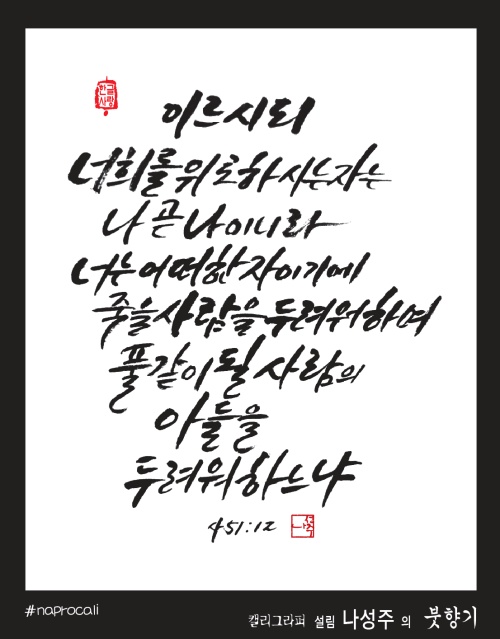 한글사랑
이르시되
너희를 위로하시는자는
나 곧 나이니라
너는 어떠한 자이기에
죽을 사람을 두려워하며
풀같이 될 사람의
아들을
두려워하느냐
사 51:12
나성주
#naprocali
캘리그라피 설림 나성주의 붓향기